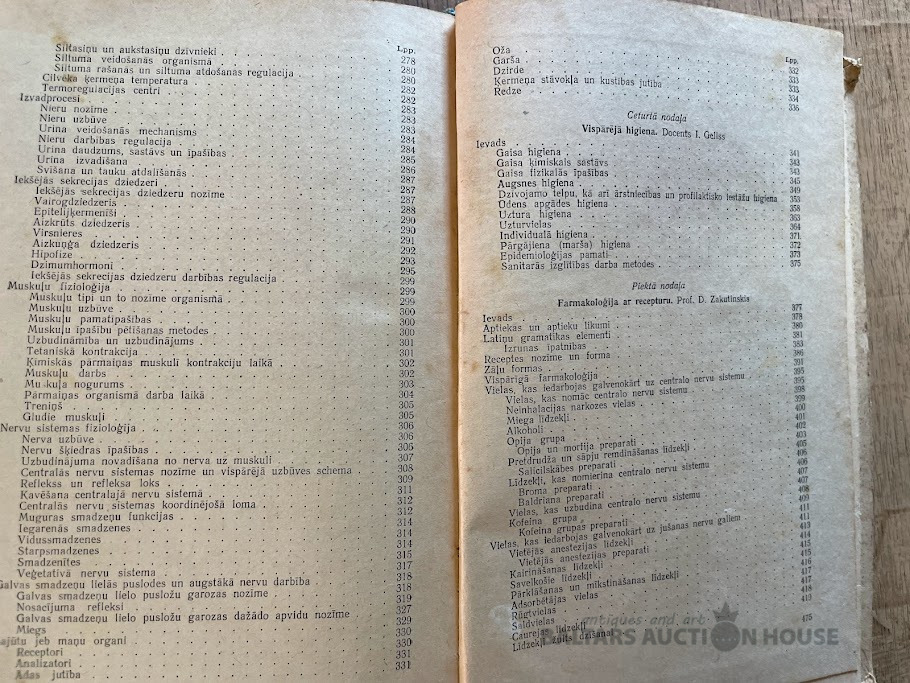 Lpp.
Siltasiņu un aukstasiņu dzīvnieki . 278
Siltuma veidošanās organismā 280
Siltuma rašanās un siltuma atdošanas regulācija 280
Cilvēka ķermeņa temperatura 282
Termoregulacijas centri 282
Izvadprocesi 283
Nieru nozīme 283
Nieru uzbūve 283
Urina veidošanās mechanisms 284
Nieru darbības regulacija 284
Urina daudzums, sastāvs un īpašības 285
Urina izvadīšana 286
Svīšana un tauku atdalīšanās 287
Iekšējās sekrecijas dziedzeri 287
Iekšējās sekrecijas dziedzeru nozīme 287
Vairogdziedzeris 288
Epitelijķermenīši 290
Aizkrūts dziedzeris 290
Virsnieres 291
Aizkuņģa dziedzeris 292
Hipofize 293
Dzimumhormoni 295
Iekšējās sekrecijas dziedzeru darbības regulacija 299
Muskuļu fizioloģija 299
Muskuļu tipi un to nozīme organismā 299
Muskuļu uzbūve 300
Muskuļu pamatīpašības 300
Muskuļu īpašību pētīšanas metodes 300
Uzbudināmība un uzbudinājums 301
Tetaniskā kontrakcija 301
Ķīmiskās pārmaiņas muskulī kontrakciju laikā 302
Muskuļu darbs 302
Muskuļa nogurums 303
Pārmaiņas organismā darba laikā 304
Treniņš 305
Gludie muskuļi 305
Nervu sistemas fizioloģija 306
Nerva uzbūve 306
Nervu šķiedras īpašības 306
Uzbudinājuma novadīšana no nerva uz muskuli 307
Centralās nervu sistemas nozīme un vispārējā uzbūves schema 308
Reflekss un refleksa loks 309
Kavēšana centralajā nervu sistemā 311
Centralās nervu sistemas koordinējošā loma 312
Muguras smadzeņu funkcijas 312
Iegarenās smadzenes 314
Vidussmadzenes 314
Starpsmadzenes 314
Smadzenītes 315
Veģetatīvā nervu sistema 317
Galvas smadzeņu lielās puslodes un augstākā nervu darbība 318
Galvas smadzeņu lielo pusložu garozas nozīme 318
Nosacījuma refleksi 319
Galvas smadzeņu lielo pusložu garozas dažādo apvidu nozīme 327
Miegs 329
ajūtu jeb maņu organi 330
Receptori 330
Analizatori 331
Ādas jutība 331
Lpp.
Oža 332
Garša 333
Dzirde 333
Ķermeņa stāvokļa un kustības jutība 334
Redze 336
Ceturtā nodaļa
Vispārējā higiena. Docents I. Geliss
Ievads 341
Gaisa higiena 343
Gaisa ķīmiskais sastāvs 343
Gaisa fizikalās īpašības 345
Augsnes higiena 349
Dzīvojamo telpu, kā arī ārstniecības un profilaktisko iestāžu higiena 353
Ūdens apgādes higiena 358
Uztura higiena 363
Uzturvielas 364
Individualā higiena 371
Pārgājiena (marša) higiena 372
Epidemioloģijas pamati 373
Sanitarās izglītības darba metodes 375
Piektā nodaļa
Farmakoloģija ar recepturu. Prof. D. Zakutinskis
Ievads 377
Aptiekas un aptieku likumi 378
Latiņu gramatikas elementi 380
Izrunas īpatnības 381
Receptes nozīme un forma 383
Zāļu formas 386
Vispārīgā farmakoloģija 391
Vielas, kas iedarbojas galvenokārt uz centralo nervu sistemu 395
Vielas, kas nomāc centralo nervu sistemu 395
Neinhalacijas narkozes vielas 398
Miega līdzekļi 399
Alkoholi 400
Opija grupa 401
Opija un morfija preparati 402
Pretdrudža un sāpju remdināšanas līdzekļi 403
Salicilskābes preparati 405
Līdzekļi, kas nomierina centralo nervu sistemu 406
Broma preparati 406
Baldriana preparati 407
Vielas, kas uzbudina centralo nervu sistemu 407
Kofeina grupa 408
Kofeina grupas preparati 409
Vielas, kas iedarbojas galvenokārt uz jušanas nervu galiem 411
Vietējās anestezijas līdzekļi 411
Vietējās anestezijas preparati 413
Kairināšanas līdzekļi 414
Savelkošie līdzekļi 415
Pārklāšanas un mīkstināšanas līdzekļi 415
Adsorbētājas vielas 416
Rūgtvielas 417
Saldvielas 417
Caurejas līdzekļi 418
Līdzekļi žults dzīšanai 419
475
antiques and art
BALTARS AUCTION HOUSE